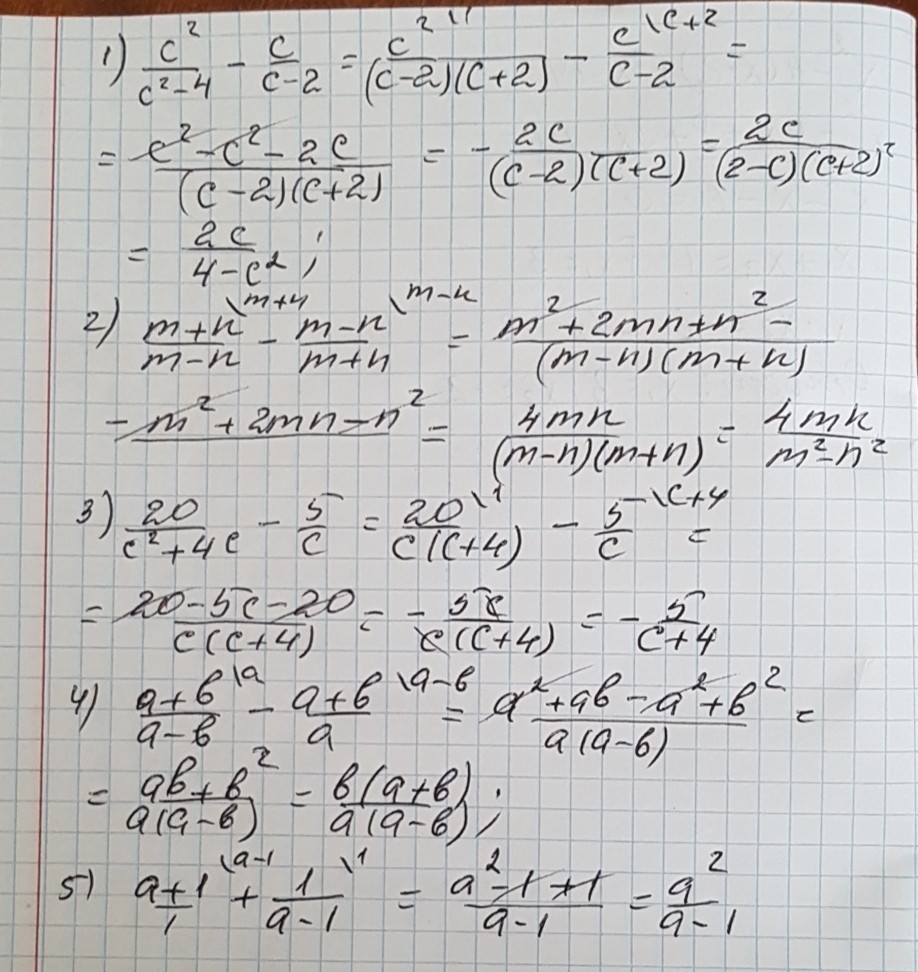 1) c²/(c²-4) - c/(c-2) = c² \1/((c-2)(c+2)) - c \c+2/(c-2) =
= (c²-c²-2c)/((c-2)(c+2)) = - 2c/((c-2)(c+2)) = 2c/((2-c)(c+2)) =
= 2c/(4-c²) ;
2) (m+n)/(m-n) \m+n - (m-n)/(m+n) \m-n = (m²+2mn+n²-)/((m-n)(m+n))
- m²+2mn-n² = 4mn/((m-n)(m+n)) = 4mn/(m²-n²)
3) 20/(c²+4c) - 5/c = 20 \1/(c(c+4)) - 5 \c+4/c =
= (20-5c-20)/(c(c+4)) = - 5c/(c(c+4)) = - 5/(c+4)
4) (a+b)/(a-b) \a - (a+b)/a \a-b = (a²+ab-a²+b²)/(a(a-b)) =
= (ab+b²)/(a(a-b)) = b(a+b)/(a(a-b)) ;
5) (a+1)/1 \a-1 + 1/(a-1) \1 = (a²-1+1)/(a-1) = a²/(a-1)